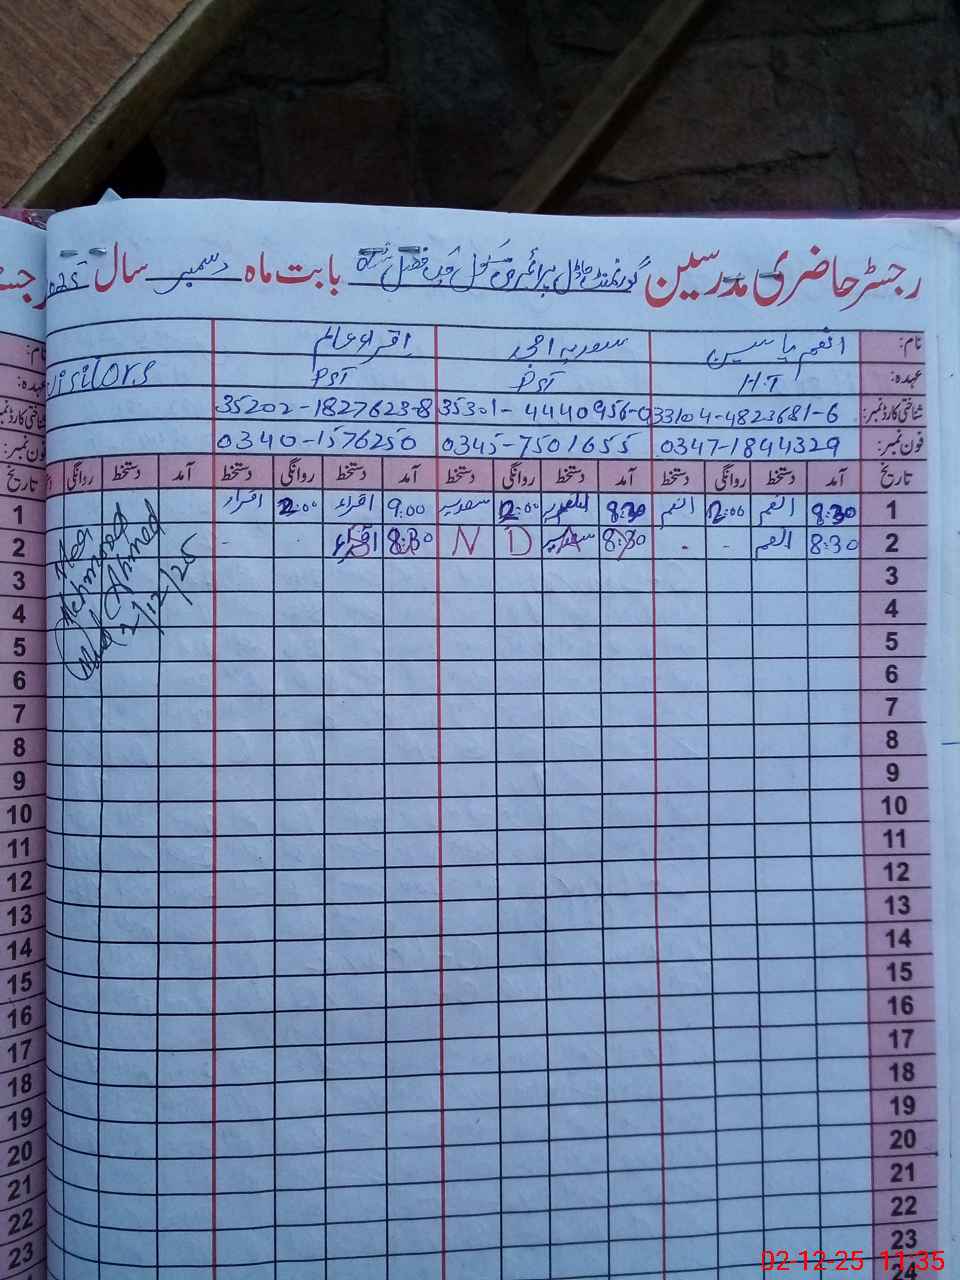 رجسٹر حاضری مدرسین گورنمنٹ ماڈل پرائمری سکول فضل بابت ماہ دسمبر سال 2025
نام: انعم یاسین سعدیہ امجد اقراء عالم
عہدہ: H.T PST PST Visitors
شناختی کارڈ نمبر: 33104-4823681-6 35301-4440956-0 35202-1827623-8
فون نمبر: 0347-1844329 0345-7501655 0340-1576250
تاریخ آمد دستخط روانگی دستخط آمد دستخط روانگی دستخط آمد دستخط روانگی دستخط آمد دستخط روانگی
1 8:30 انعم 12:00 انعم 8:30 سعدیہ 12:00 سعدیہ 9:00 اقراء 2:00 اقراء
2 8:30 انعم - - 8:30 سعدیہ D N 8:30 اقراء - -
Mehmood
Ahmed
2/12/25
3
4
5
6
7
8
9
10
11
12
13
14
15
16
17
18
19
20
21
22
23
24
رجسٹ
نام:
عہدہ:
شناختی کارڈ نمبر
فون نمبر:
تاریخ
1
2
3
4
5
6
7
8
9
10
11
12
13
14
15
16
17
18
19
20
21
22
23
02-12-25 11:35